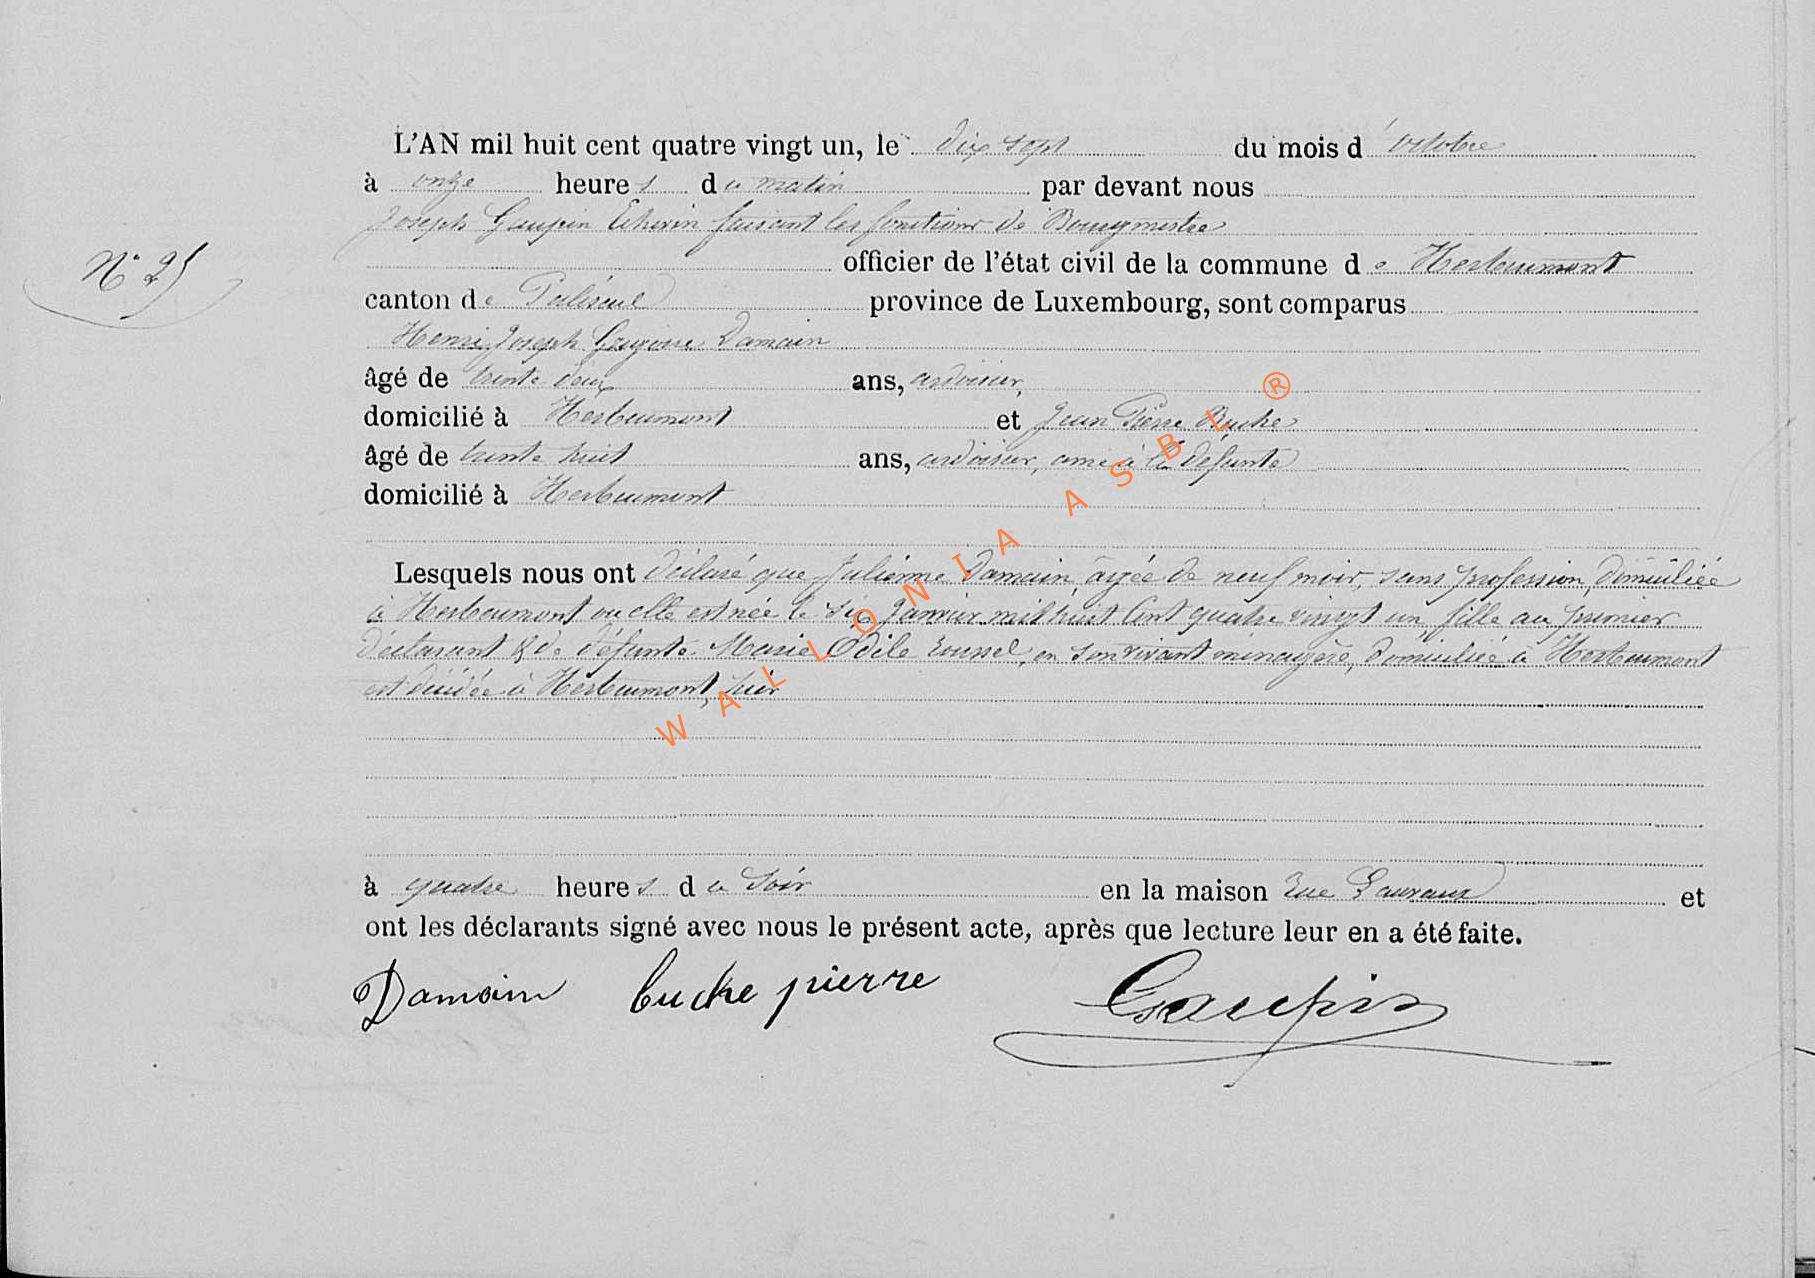 L'AN mil huit cent quatre vingt un, le dix sept du mois d'octobre
à onze heures du matin par devant nous
Joseph Gaupin Echevin faisant les fonctions de Bourgmestre
N° 25
officier de l'état civil de la commune de Herbeumont
canton de Paliseul province de Luxembourg, sont comparus
Henri Joseph Grégoire Damain
âgé de trente deux ans, ardoisier,
domicilié à Herbeumont et Jean Pierre Buche
âgé de trente huit ans, ardoisier, ami à la défunte
domicilié à Herbeumont
Lesquels nous ont déclaré que Julienne Damain, âgée de neuf mois, sans profession, domiciliée
à Herbeumont où elle est née le six Janvier mil huit Cent quatre vingt un, fille au premier
déclarant & de défunte Marie Odile Roussel, en son vivant ménagère, domiciliée à Herbeumont
est décédée à Herbeumont, hier
à quatre heures du soir en la maison rue et
ont les déclarants signé avec nous le présent acte, après que lecture leur en a été faite.
Damain buche pierre Gaupin
WALLONIA ASBL ®